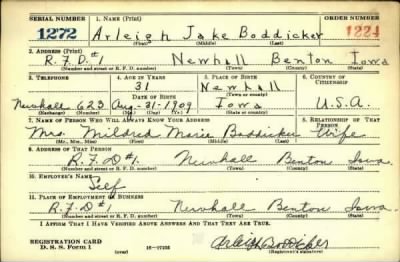 SERIAL NUMBER 1. NAME (Print) ORDER NUMBER
1272 Arleigh Jake Boddicker 1224
(First) (Middle) (Last)
2. ADDRESS (Print)
R.F.D. #1 Newhall Benton Iowa
(Number and street or R. F. D. number) (Town) (County) (State)
3. TELEPHONE 4. AGE IN YEARS 5. PLACE OF BIRTH 6. COUNTRY OF CITIZENSHIP
31 Newhall
(Town or county)
DATE OF BIRTH
Newhall 623 Aug-31-1909 Iowa U.S.A.
(Exchange) (Number) (Mo.) (Day) (Yr.) (State or country)
7. NAME OF PERSON WHO WILL ALWAYS KNOW YOUR ADDRESS 8. RELATIONSHIP OF THAT PERSON
Mrs. Mildred Marie Boddicker Wife
(Mr., Mrs., Miss) (First) (Middle) (Last)
9. ADDRESS OF THAT PERSON
R.F.D #1. Newhall Benton Iowa.
(Number and street or R. F. D. number) (Town) (County) (State)
10. EMPLOYER'S NAME
Self
11. PLACE OF EMPLOYMENT OR BUSINESS
R.F.D #1 Newhall Benton Iowa.
(Number and street or R. F. D. number) (Town) (County) (State)
I AFFIRM THAT I HAVE VERIFIED ABOVE ANSWERS AND THAT THEY ARE TRUE.
REGISTRATION CARD
D. S. S. Form 1 (over) 16-17105 Arleigh Boddicker
(Registrant's signature)